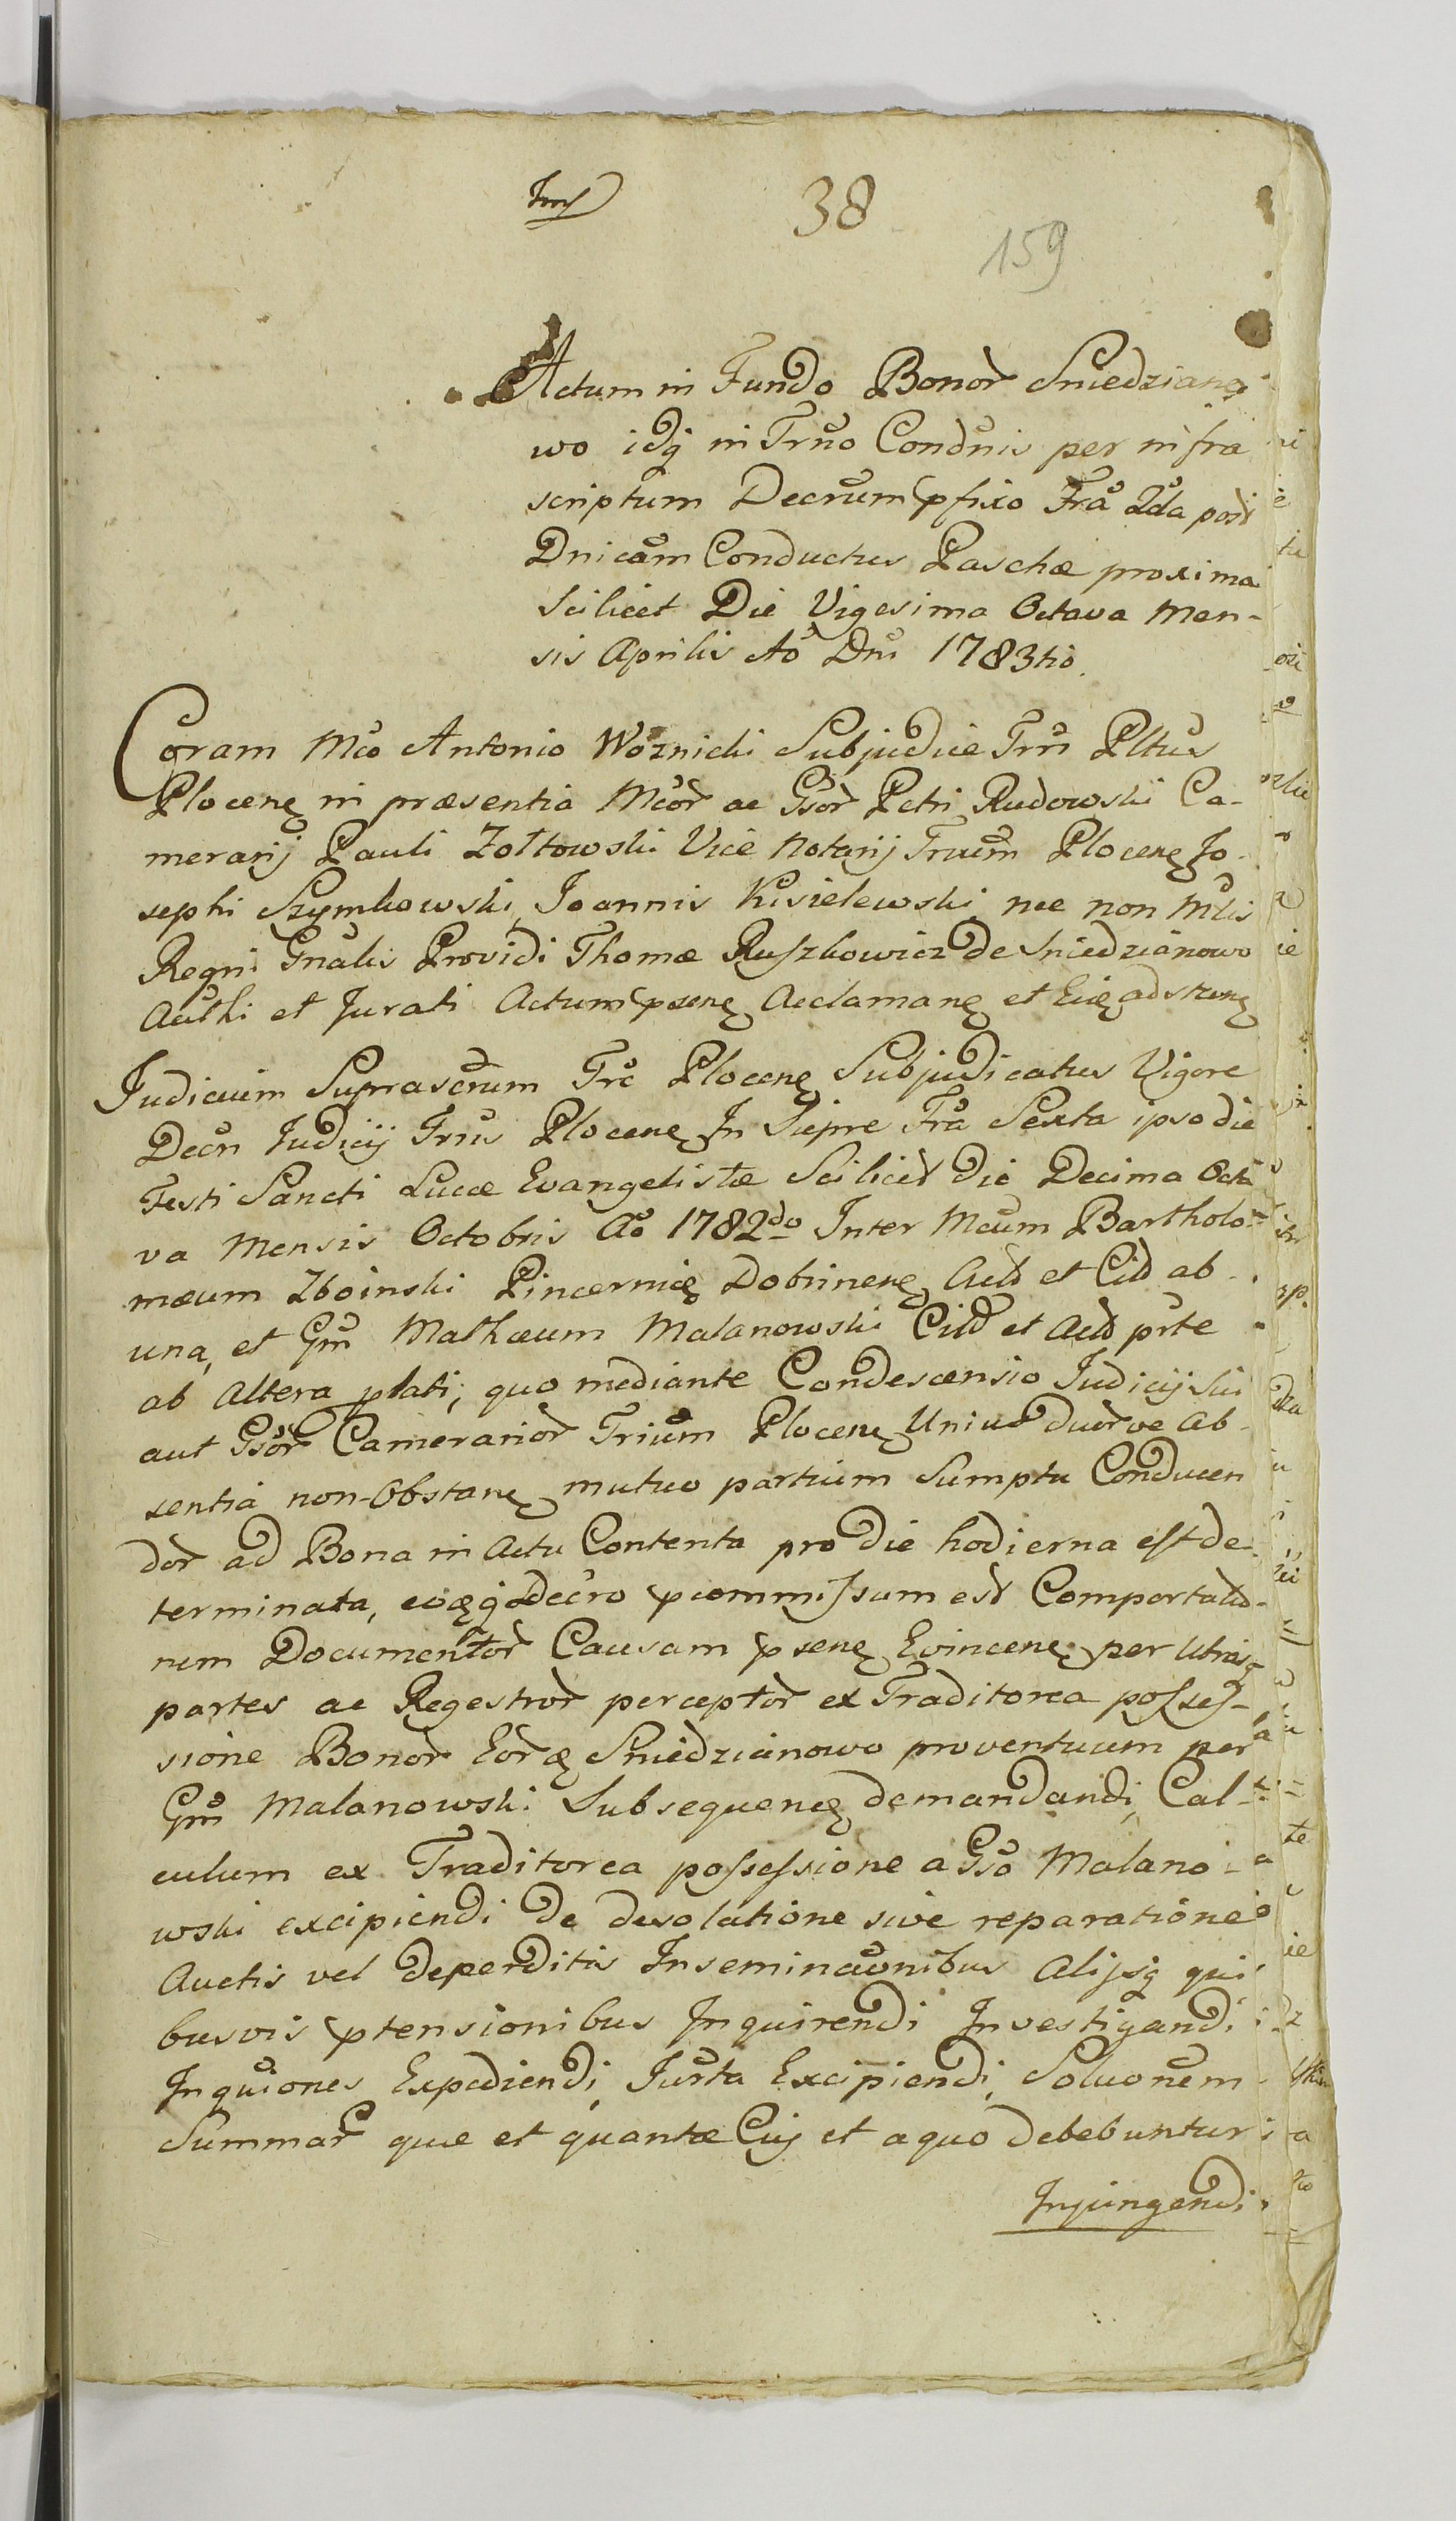 38
159
Actum in Fundo Bonor Sniedziano
wo idq in Trno Condnis per infra
scriptum Decrum pfixo Fra 2da post
Dnicam Conductus Paschæ proxima
Scilicet Die Vigesima Octava Men-
sis Aprilis Ao Dni 1783tio.
Coram Mco Antonio Woznicki Subjudice Trri Pltus
Plocenę in præsentia Mcor ac Gsor Petri Rudowski Ca-
merarij Pauli Zołtowski Vice Notarij Trrium Plocenę Jo-
sephi Szymkowski, Joannis Kisielewski nec non Mtlis
Regni Gnalis Providi Thomæ Ruszkowicz de Sniedzianowo
Authi et Jurati Actum psenę Acclamanę et Eię adstanę
Judicium Suprascrum Tre Plocenę Subjudicatus Vigore
Decri Judicij Trris Plocenę In Siepre Fra Sexta ipso die
Festi Sancti Lucæ Evangelistæ Scilicet die Decima Octa
va Mensis Octobris Ao 1782do Inter Mcum Bartholo-
mæum Zboinski Pincernię Dobrinenę Actd et Citd ab
una, et Gm Mathæum Malanowski Citd et Actd prte
ab Altera plati, quo mediante Condescensio Judicij Sui
aut Gsor Camerarior Trrium Plocenę Unius duor ve Ab-
sentia non-Obstanę mutuo partium Sumptu Conducen
dor ad Bona in Actu Contenta pro die hodierna est de-
terminata, eoęq Decro pcommissum est Comportatio-
nem Documentor Causam psenę Evincenę per Utrasq
partes ac Regestror perceptor ex Traditorea posses-
sione Bonor Eorę Sniedzianowo proventuum per
Gm Malanowski Subsequenę demandandi, Cal-
culum ex Traditorea possessione a Gso Malano-
wski excipiendi de desolatione sive reparatione
Auctis vel deperditis Inseminaonibus Alijsq qui
busvis ptensionibus Inquirendi Investigandi
Inquiones Expediendi, Jurta Excipiendi, Soluonem
Summar quæ et quantæ Cuj et a quo debebuntur
Injungendi